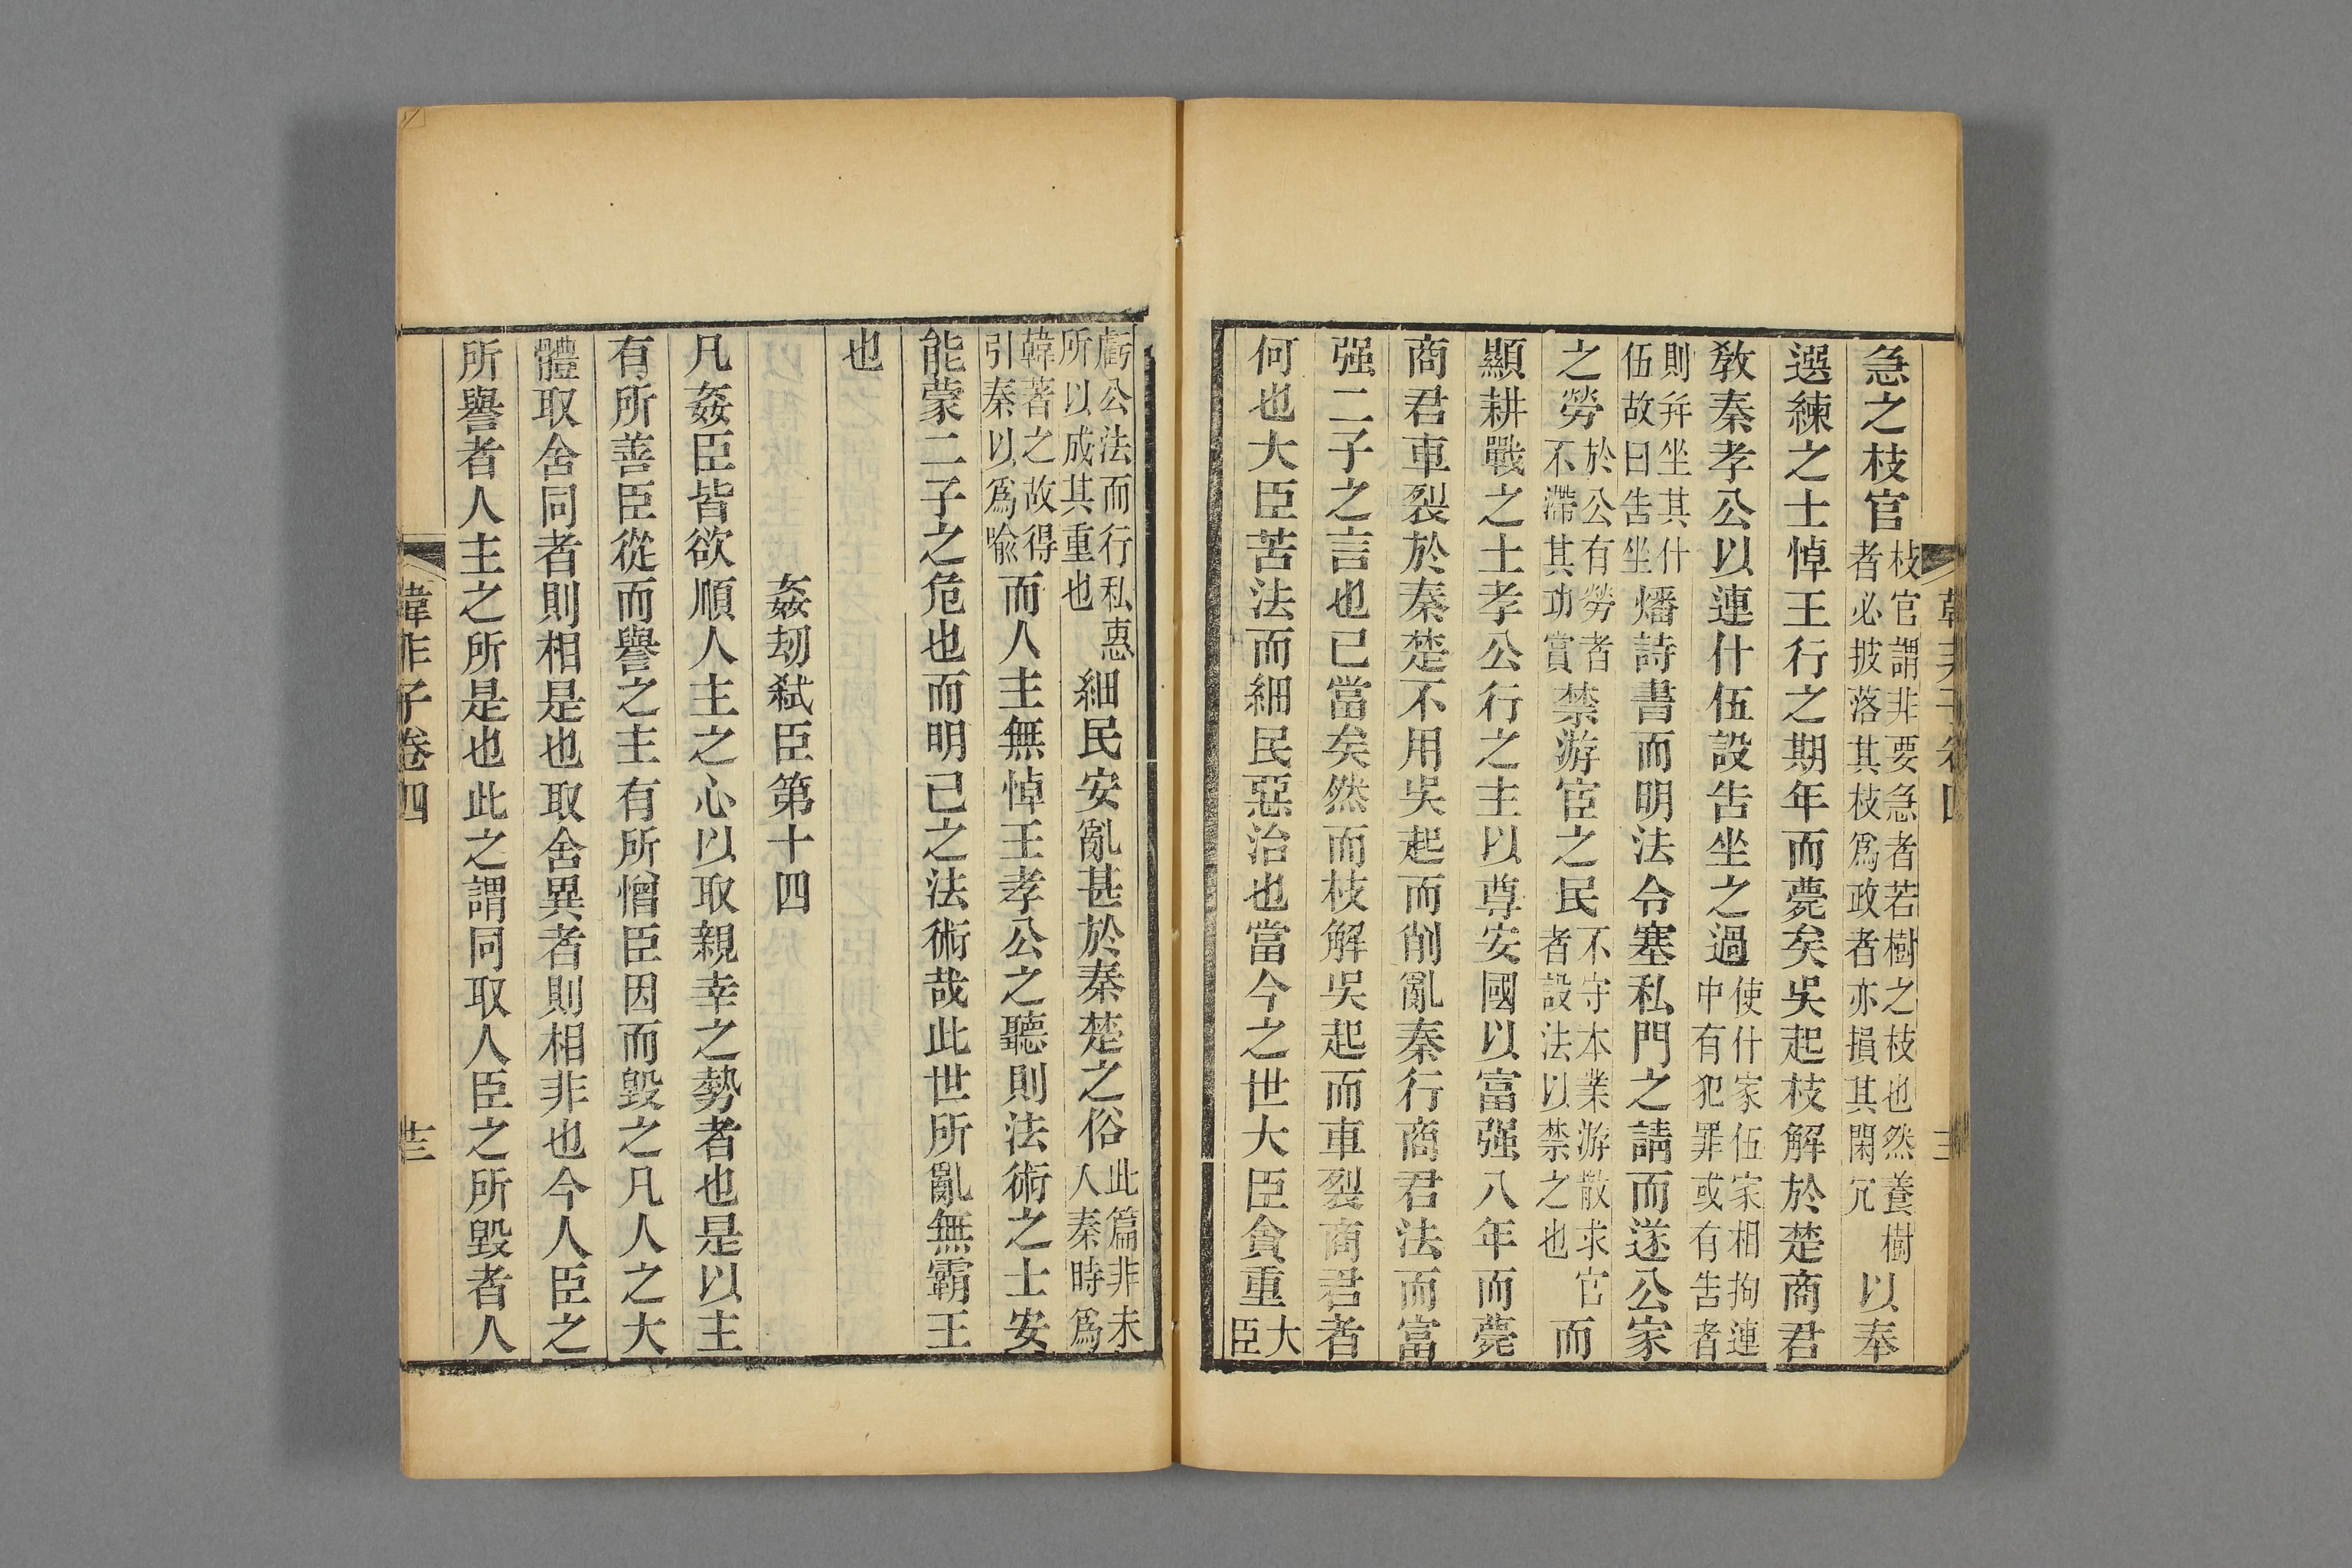 急之枝官枝官謂非要急者若樹之枝也然養樹者必披落其枝爲政者亦損其閑冗以奉
選練之士悼王行之期年而薨矣吳起枝解於楚商君
敎秦孝公以連什伍設告坐之過使什家伍家相拘連中有犯罪或有告者
則幷坐其什伍故曰告坐燔詩書而明法令塞私門之請而遂公家
之勞於公有勞者不滯其功賞禁游宦之民不守本業游散求官者設法以禁之也而
顯耕戰之士孝公行之主以尊安國以富强八年而薨
商君車裂於秦楚不用吳起而削亂秦行商君法而富
强二子之言也已當矣然而枝解吳起而車裂商君者
何也大臣苦法而細民惡治也當今之世大臣貪重大臣
虧公法而行私惠所以成其重也細民安亂甚於秦楚之俗此篇非未人秦時爲
韓著之故得引秦以爲喩而人主無悼王孝公之聽則法術之士安
能蒙二子之危也而明己之法術哉此世所亂無霸王
也
姦劫弑臣第十四
凡姦臣皆欲順人主之心以取親幸之勢者也是以主
有所善臣從而譽之主有所憎臣因而毀之凡人之大
體取舍同者則相是也取舍異者則相非也今人臣之
所譽者人主之所是也此之謂同取人臣之所毀者人
韓非子卷四